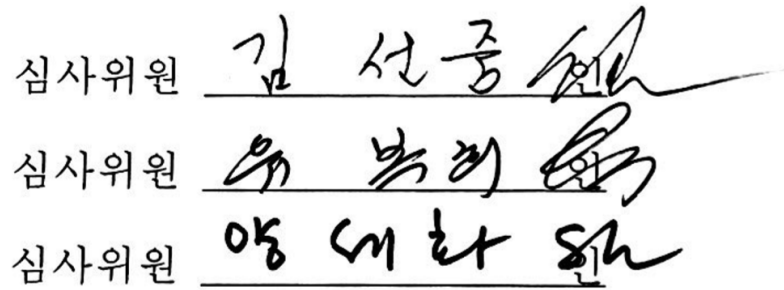 심사위원 김 선중 인
심사위원 유 복희 인
심사위원 양 세화 인